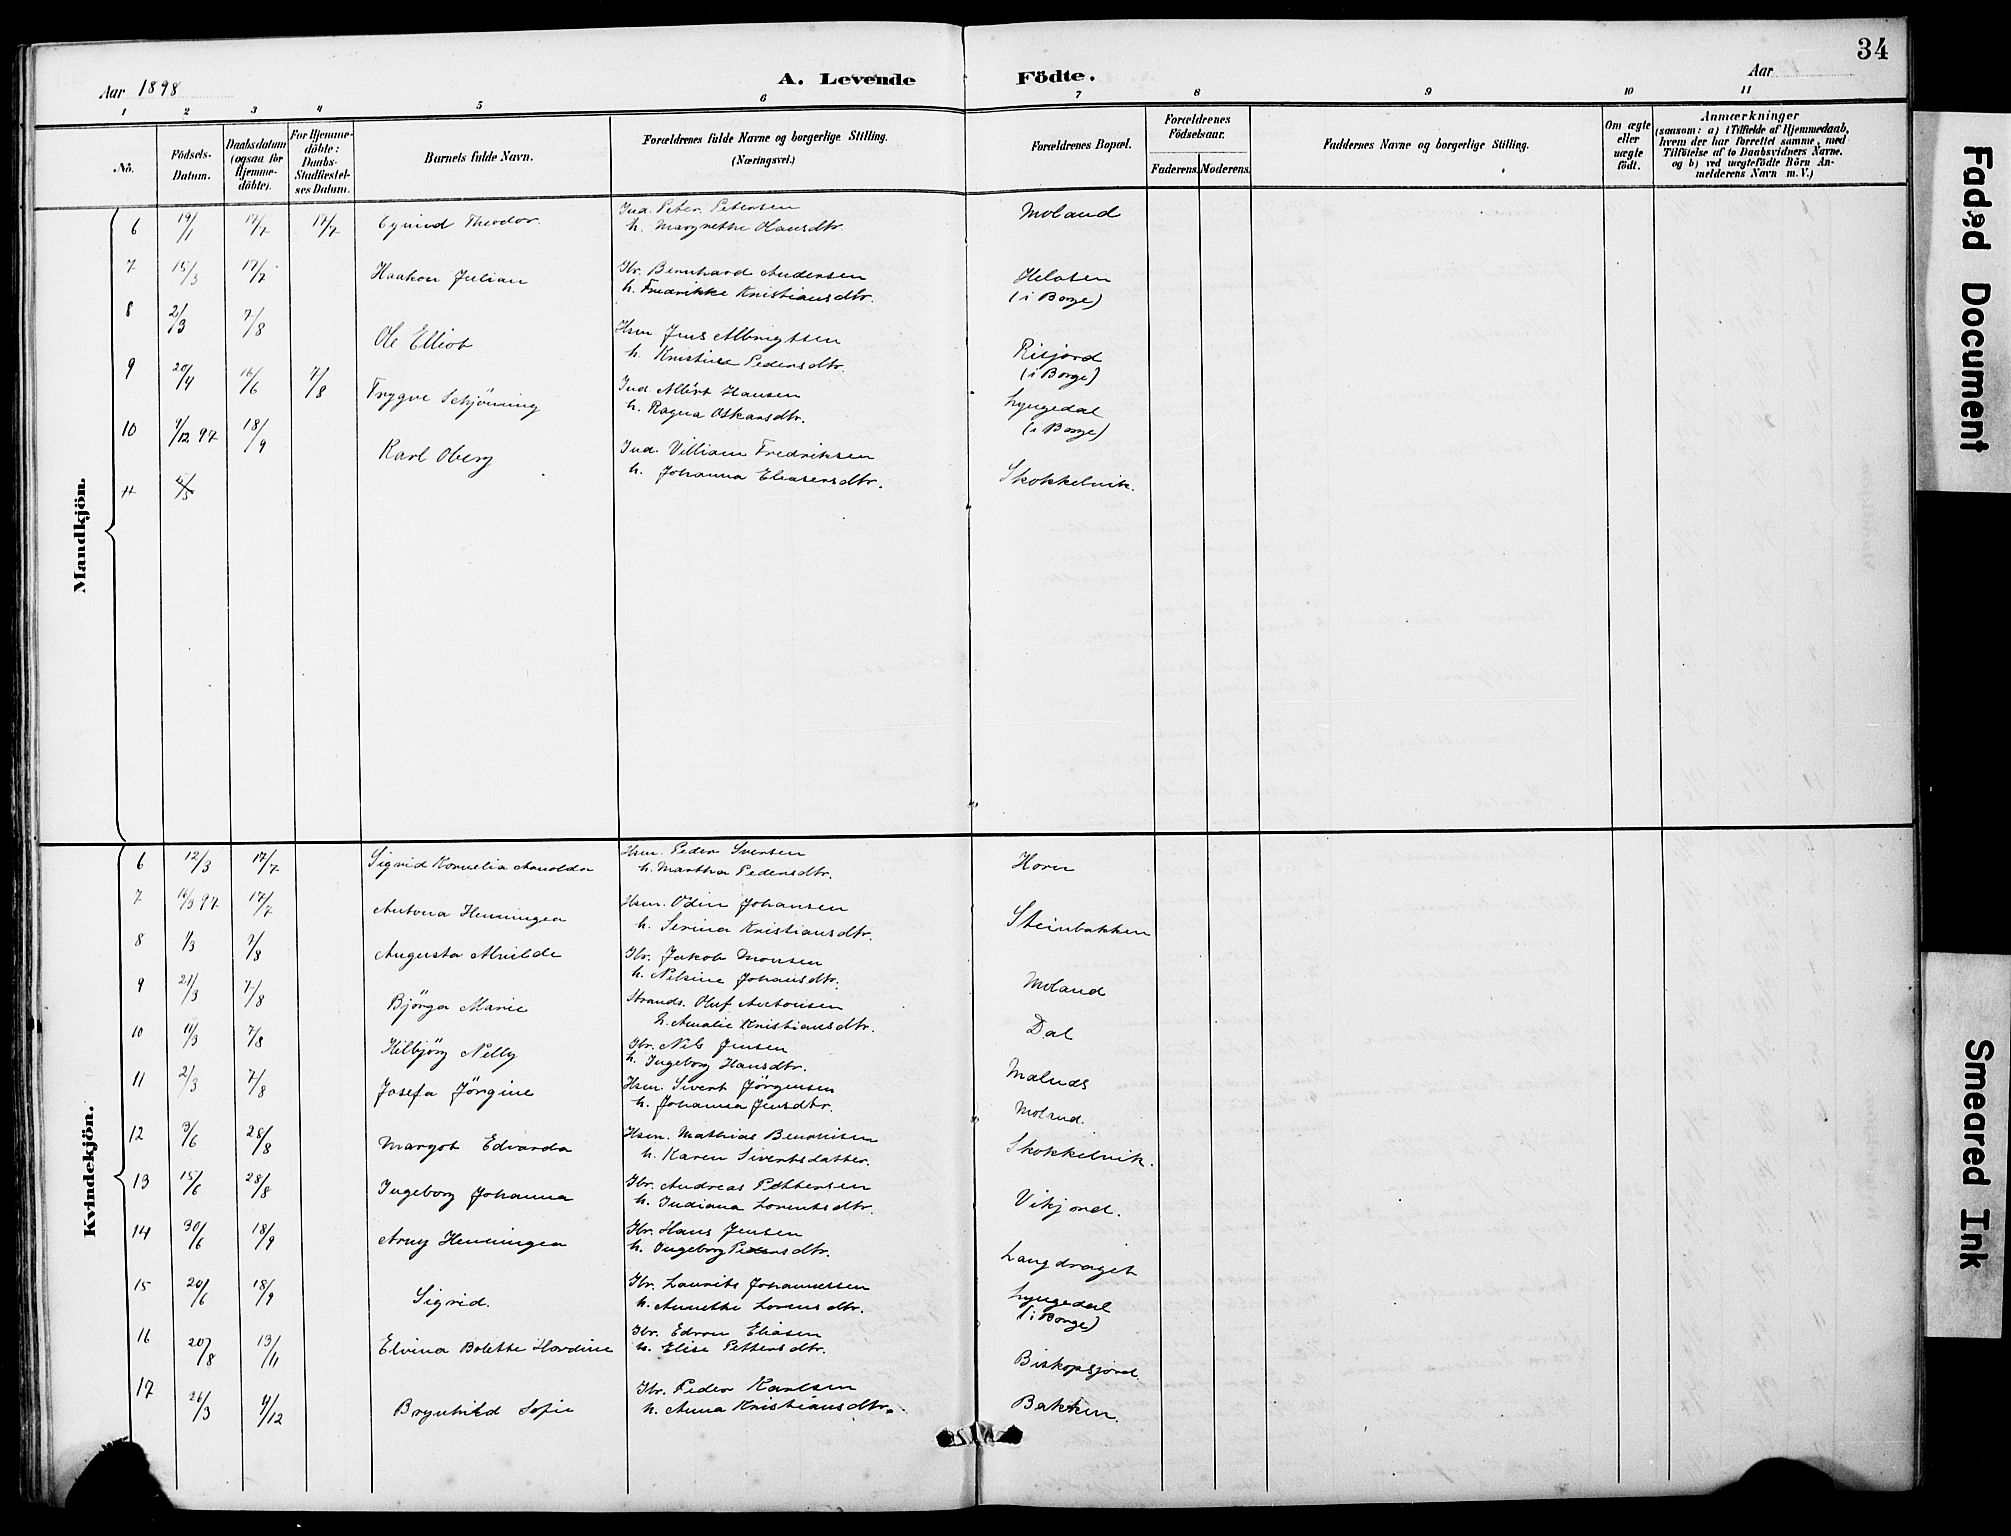 34
Aar 1898
A. Levende Födte.
Aar
1 2 3 4 5 6 7 8 9 10 11
No.
Födsels-Datum.
Daabsdatum (ogsaa for Hjemme-döbte).
For Hjemme-döbte: Daabs-Stadfæstel-ses Datum.
Barnets fulde Navn.
Forældrenes fulde Navne og borgerlige Stilling. (Næringsvei.)
Forældrenes Bopæl.
Forældrenes Födselsaar.
Faderens. Moderens.
Faddernes Navne og borgerlige Stilling.
Om ægte eller uægte födt.
Anmærkninger
(saasom: a) i Tilfælde af Hjemmedaab, hvem der har forrettet samme, med Tilföielse af to Daabsvidners Navne, og b) ved uægtefödte Börn An-melderens Navn m. V.)
Mandkjön.
6 19/1 17/7 17/7 Eyvind Theodor. Ind. Peter Petersen Moland
h. Margrethe Hansdtr.
7 15/3 17/7 Haakon Julian Gbr. Bernhard Andersen Helosen
h. Fredrikke Kristiansdtr. (i Borge)
8 21/3 7/8 Ole Elliot Hsm Jens Albrigtsen
h. Kristine Pedersdtr. Risjord (i Borge)
9 20/4 16/6 7/8 Trygve Schjönning Ind. Albert Hansen Lyngedal
h. Ragna Oskarsdtr. (i Borge)
10 9/12 97 18/9 Karl Oberg Ind. Villiam Fredriksen
h. Johanna Eliasensdtr. Skokkelvik.
11
Kvindekjön.
6 12/3 17/7 Sigrid Kornelia Arnolda Hsm. Peder Sversen Horn
h. Martha Pedersdtr.
7 16/9 97 17/7 Antona Henningea Hsm. Odin Johansen Steinbakken
h. Serina Kristiansdtr.
8 1/3 7/8 Augusta Alvilde Gbr. Jakob Monsen
h. Nelsine Johansdtr. Moland
9 21/3 7/8 Björga Marie Strands. Oluf Antonsen
h. Amalie Kristiansdtr. Dal
10 11/3 7/8 Hilbjörg Nelly Gbr. Nils Jensen
h. Ingeborg Hansdtr. Malnæs
11 2/3 7/8 Josefa Jörgine Hsm. Sivert Jörgensen
h. Johanna Jensdtr. Moland.
12 3/6 28/8 Margot Edvarda Hsm. Mathias Benonisen Skokkelvik.
h. Karen Sivertsdatter.
13 15/6 28/8 Ingeborg Johanna Gbr. Andreas Pettersen Vikjord.
h. Indiana Lorentsdtr.
14 30/6 18/9 Arny Henningea Gbr. Hans Jensen
h. Ingeborg Pedersdtr. Langdraget
15 20/6 18/9 Sigrid. Gbr. Laurits Johannessen Lyngedal
h. Annette Lorensdtr. (i Borge)
16 20/8 13/11 Elvina Bolette Hardine Gbr. Edvon Eliasen
h. Elise Pettersdtr. Biskopsjord.
17 26/3 4/12 Brynhild Sofie Gbr. Peder Karlsen
h. Anna Kristiansdtr. Bakken.
Faded Document
Smeared Ink